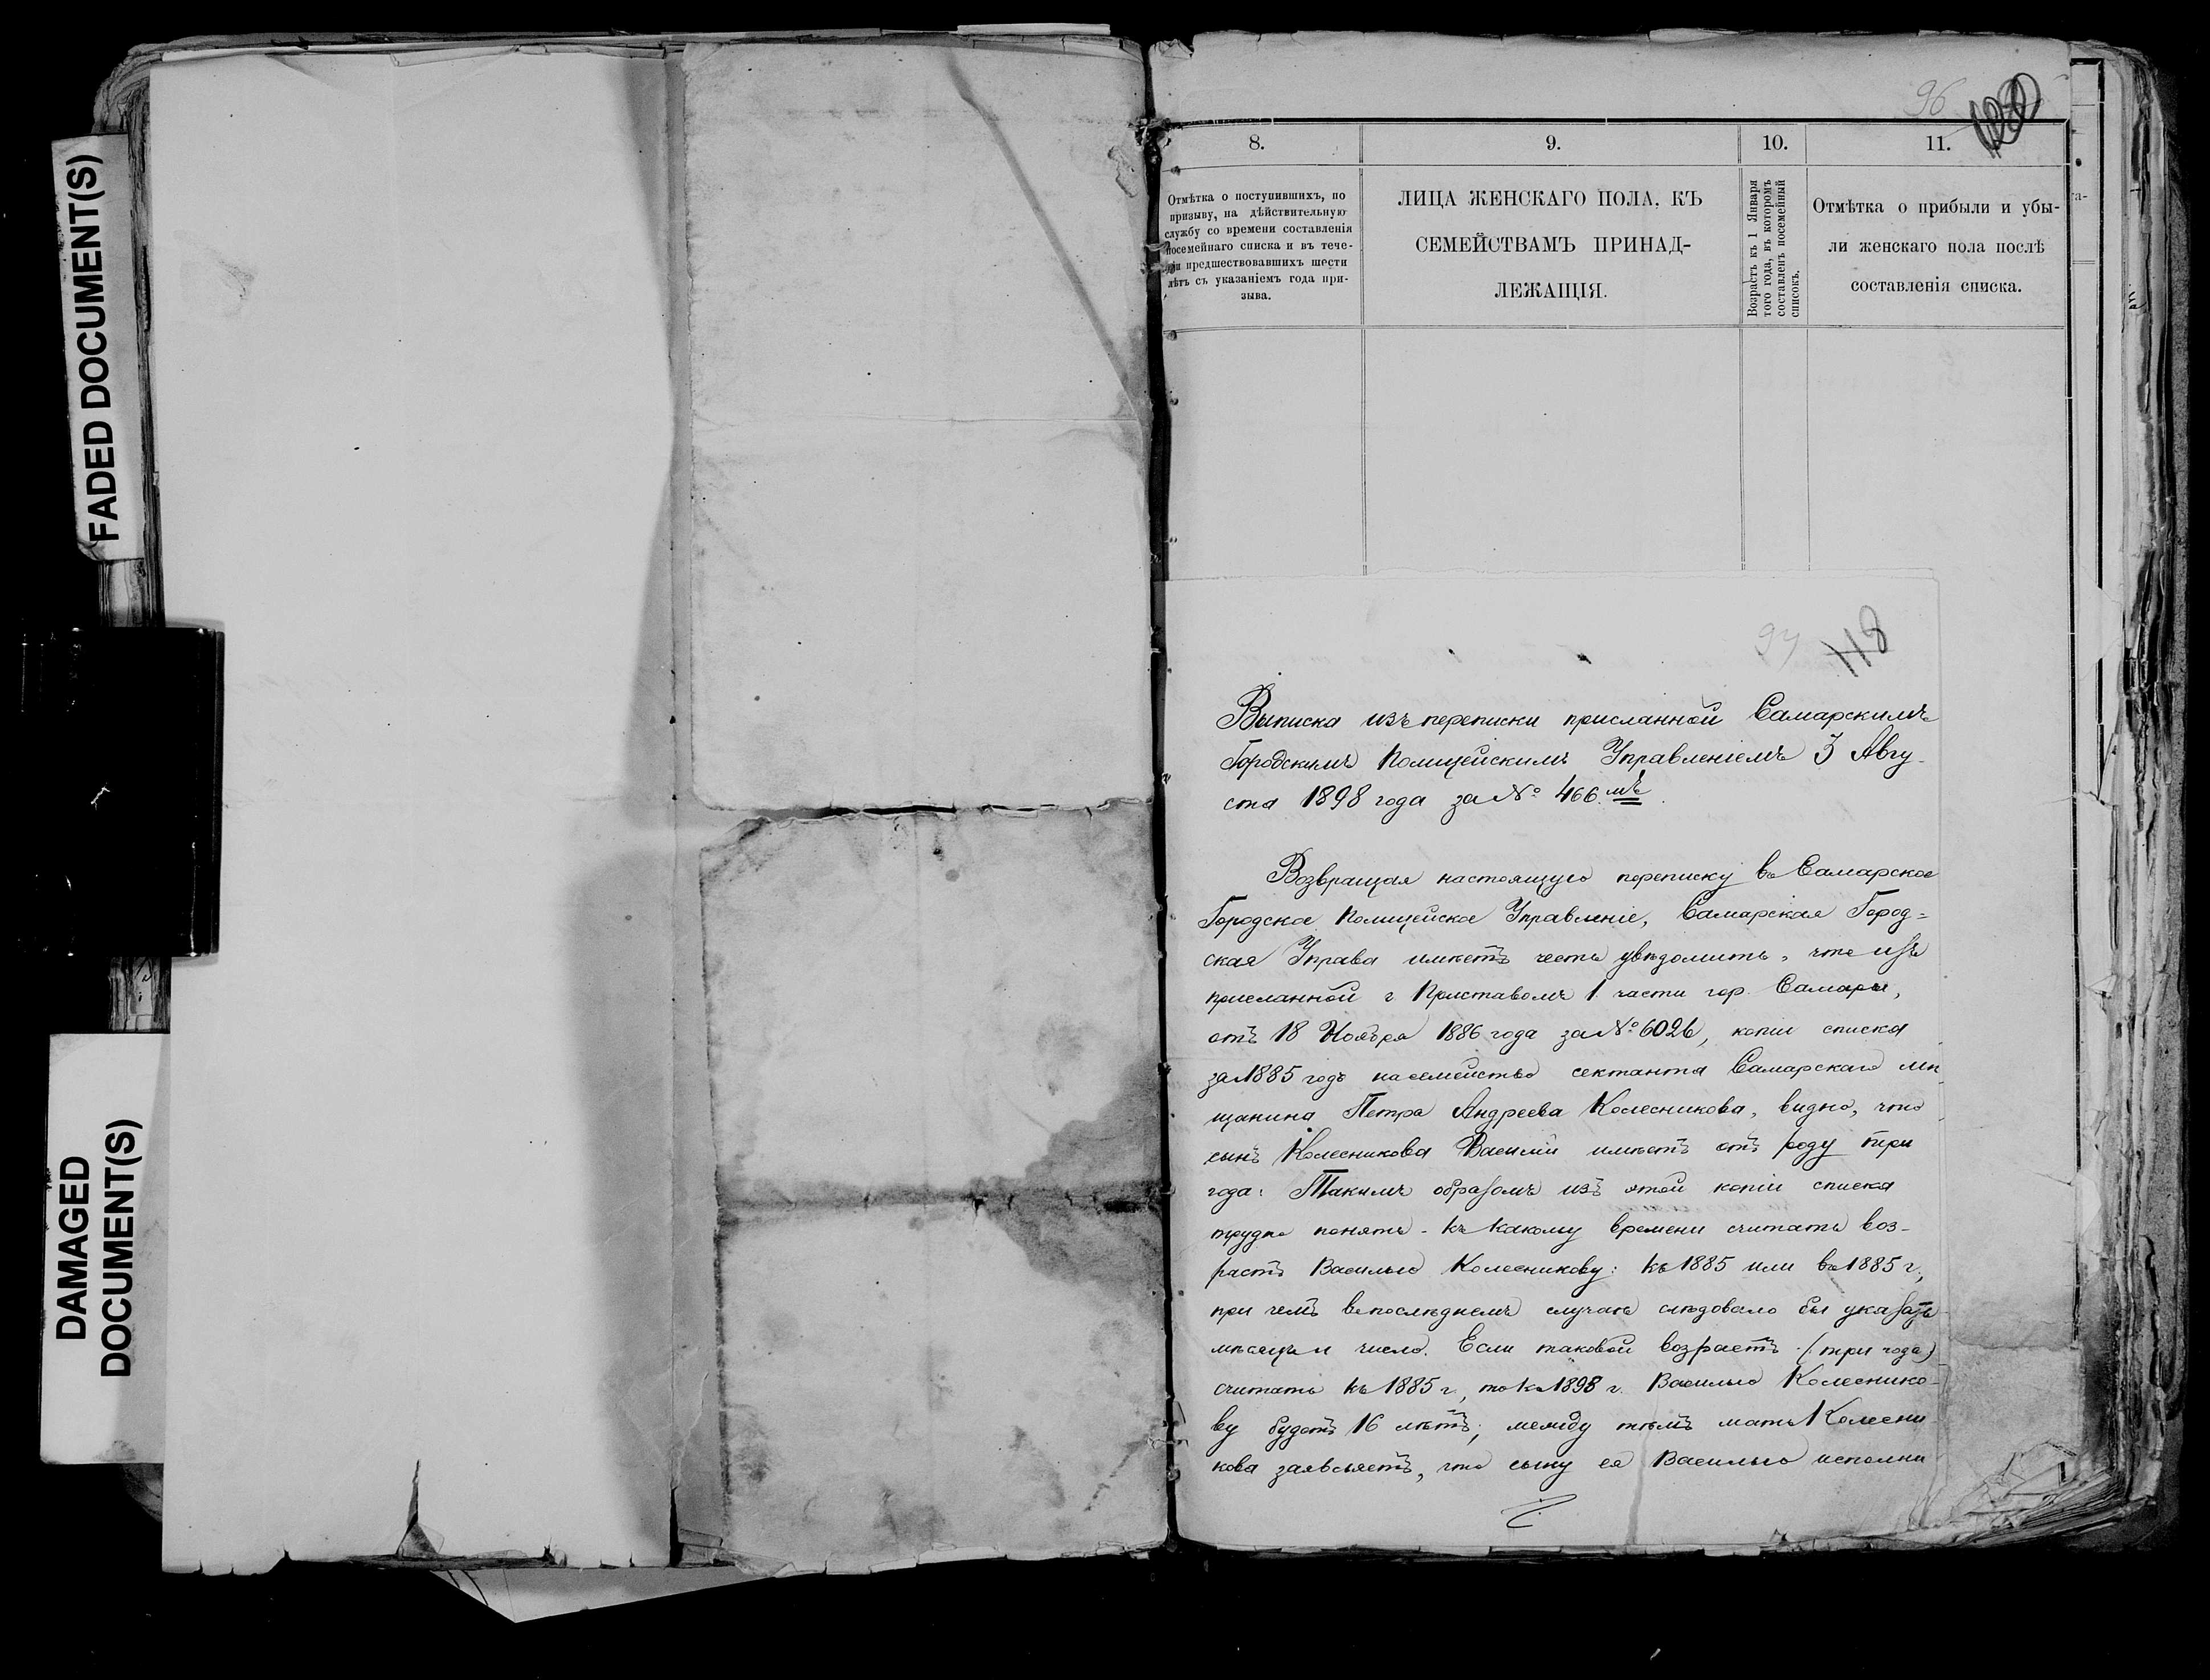 FADED DOCUMENT(S)
DAMAGED
DOCUMENT(S)
96
8.
9.
10.
11.
Отмѣтка о поступившихъ, по
призыву, на дѣйствительную
службу со времени составленія
посемейнаго списка и въ тече-
ніи предшествовавшихъ шести
лѣтъ съ указаніемъ года при-
зыва.
ЛИЦА ЖЕНСКАГО ПОЛА, КЪ
СЕМЕЙСТВАМЪ ПРИНАД-
ЛЕЖАЩІЯ.
Возрастъ къ 1 Января
того года, въ которомъ
составленъ посемейный
списокъ.
Отмѣтка о прибыли и убы-
ли женскаго пола послѣ
составленія списка.
118
Выписка изъ переписки присланной Самарскимъ
Городскимъ Полицейскимъ Управленіемъ 3 Авгу-
ста 1898 года за № 466.мъ
Возвращая настоящую переписку въ Самарское
Городское Полицейское Управленіе, Самарская Город=
ская Управа имѣетъ честь увѣдомить, что изъ
присланной г. Приставомъ 1. части гор. Самары,
отъ 18 Ноября 1886 года за № 6026, копіи списка
за 1885 годъ на семейство сектанта Самарскаго мѣ
щанина Петра Андреева Колесникова, видно, что
сынъ Колесникова Василій имѣетъ отъ роду три
года: Такимъ образомъ изъ этой копіи списка
трудно понять - къ какому времени считать воз-
растъ Василью Колесникову: къ 1885 или въ 1885 г.,
при чемъ въ послѣднемъ случаѣ слѣдовало бы указать
мѣсяцъ и число. Если таковой возрастъ (три года)
считать къ 1885 г., то къ 1898 г. Василью Колеснико-
ву будетъ 16 лѣтъ; между тѣмъ мать Колесни
кова заявляетъ, что сыну ея Василью исполни